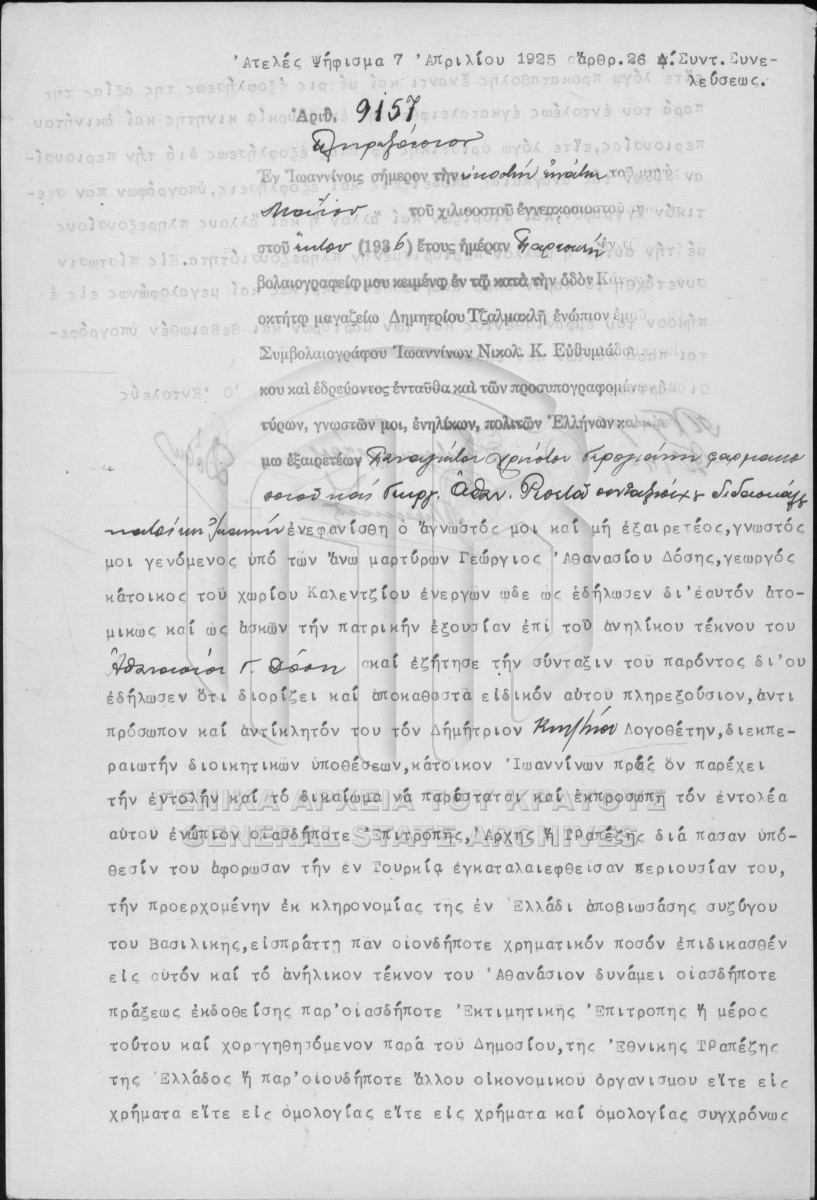 Ἀτελές Ψήφισμα 7 Ἀπριλίου 1925 ἄρθρ.26 Δ΄.Συντ.Συνε-
λεύσεως.
Ἀριθ. 9157
Πληρεξούσιον
Ἐν Ἰωαννίνοις σήμερον τὴν εἰκοστὴν ἐνάτην τοῦ μηνὸς
Μαΐου τοῦ χιλιοστοῦ ἐννεακοσιοστοῦ
στοῦ ἕκτου (1936) ἔτους ἡμέραν Παρασκευὴν ἐν
βολαιογραφείῳ μου κειμένῳ ἐν τῷ κατὰ τὴν ὁδὸν
οκτήτῳ μαγαζείῳ Δημητρίου Τζαλμακλῆ ἐνώπιον ἐμοῦ
Συμβολαιογράφου Ἰωαννίνων Νικολ. Κ. Εὐθυμιάδου
κου καὶ ἑδρεύοντος ἐνταῦθα καὶ τῶν προσυπογραφομένων
τύρων, γνωστῶν μοι, ἐνηλίκων, πολιτῶν Ἑλλήνων καὶ
μω ἐξαιρετέων Παναγιώτου Χρήστου φαρμακο
ποιοῦ καὶ Γεωργ. Ἀθαν. συνταξιούχου διδασκάλου
κατοίκων ἐνεφανίσθη ὁ ἄγνωστός μοι καί μή ἐξαιρετέος,γνωστός
μοι γενόμενος ὑπό τῶν ἄνω μαρτύρων Γεώργιος Ἀθανασίου Δόσης,γεωργός
κάτοικος τοῦ χωρίου Καλεντζίου ἐνεργῶν ὧδε ὡς ἐδήλωσεν δι'ἑαυτόν ἀτο-
μικῶς καί ὡς ἀσκῶν τήν πατρικήν ἐξουσίαν ἐπί τοῦ ἀνηλίκου τέκνου του
Ἀθανασίου Γ. Δόση καί ἐζήτησε τήν σύνταξιν τοῦ παρόντος δι'οὗ
ἐδήλωσεν ὅτι διορίζει καί ἀποκαθιστᾶ εἰδικόν αὐτοῦ πληρεξούσιον,ἀντι
πρόσωπον καί ἀντίκλητόν του τόν Δημήτριον Λογοθέτην,διεκπε-
ραιωτήν διοικητικῶν ὑποθέσεων,κάτοικον Ἰωαννίνων πρός ὅν παρέχει
τήν ἐντολήν καί τό δικαίωμα νά παρίσταται καί ἐκπροσωπῇ τόν ἐντολέα
αὐτοῦ ἐνώπιον οἱασδήποτε Ἐπιτροπῆς,Ἀρχῆς ἤ Τραπέζης διά πᾶσαν ὑπό-
θεσίν του ἀφορῶσαν τήν ἐν Τουρκίᾳ ἐγκαταλαιεφθεῖσαν περιουσίαν του,
τήν προερχομένην ἐκ κληρονομίας τῆς ἐν Ἑλλάδι ἀποβιωσάσης συζύγου
του Βασιλικῆς,εἰσπράττῃ πᾶν οἱονδήποτε χρηματικόν ποσόν ἐπιδικασθέν
εἰς αὐτόν καί τό ἀνήλικον τέκνον του Ἀθανάσιον δυνάμει οἱασδήποτε
πράξεως ἐκδοθείσης παρ'οἱασδήποτε Ἐκτιμητικῆς Ἐπιτροπῆς ἤ μέρος
τούτου καί χορηγηθησόμενον παρά τοῦ Δημοσίου,τῆς Ἐθνικῆς Τραπέζης
τῆς Ἑλλάδος ἤ παρ'οἱουδήποτε ἄλλου οἰκονομικοῦ ὀργανισμοῦ εἴτε εἰς
χρήματα εἴτε εἰς ὁμολογίας εἴτε εἰς χρήματα καί ὁμολογίας συγχρόνως
ΓΕΝΙΚΑ ΑΡΧΕΙΑ ΤΟΥ ΚΡΑΤΟΥΣ
GENERAL STATE ARCHIVES